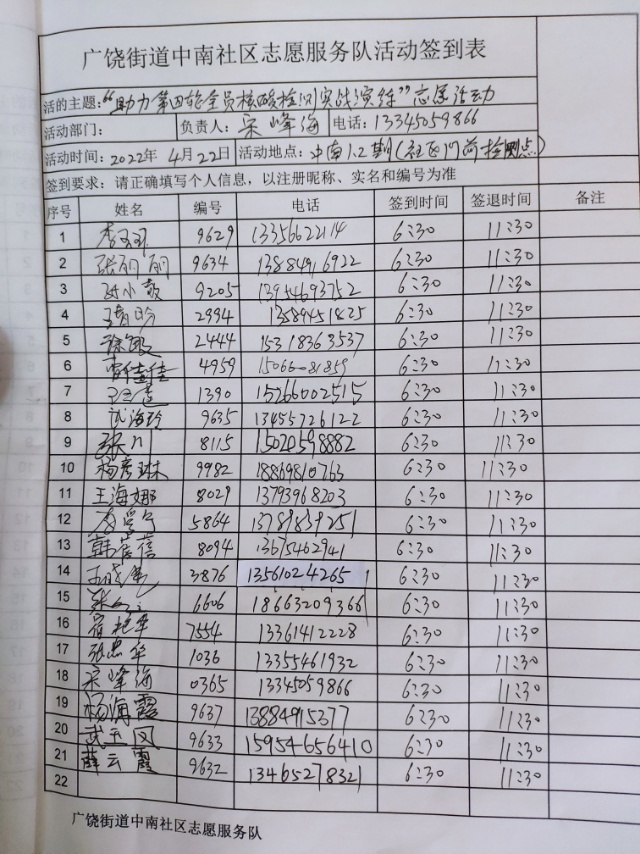 广饶街道中南社区志愿服务队活动签到表
活的主题：“助力第四轮全员核酸检测实战演练”志愿活动
活动部门： 负责人：宋峰海 电话：13345059866
活动时间：2022年4月22日 活动地点：中南1.2期（社区门前检测点）
签到要求：请正确填写个人信息，以注册昵称、实名和编号为准
序号 姓名 编号 电话 签到时间 签退时间 备注
1 9629 13356622114 6:30 11:30
2 张丽丽 9634 13884916922 6:30 11:30
3 9205 13954693752 6:30 11:30
4 2994 13589451825 6:30 11:30
5 2444 15318363537 6:30 11:30
6 4959 15066081859 6:30 11:30
7 1390 15266002515 6:30 11:30
8 沈海玲 9635 13455726122 6:30 11:30
9 8115 15020598882 6:30 11:30
10 杨彦琳 9982 18869810763 6:30 11:30
11 王海娜 8029 13793968203 6:30 11:30
12 5864 13789839251 6:30 11:30
13 8094 13675462941 6:30 11:30
14 3876 13561024265 6:30 11:30
15 6606 18663209366 6:30 11:30
16 7554 13361412228 6:30 11:30
17 张忠华 1036 13355461932 6:30 11:30
18 宋峰海 0365 13345059866 6:30 11:30
19 杨海霞 9637 13884915377 6:30 11:30
20 武玉凤 9633 15954656410 6:30 11:30
21 薛云霞 9632 13465278321 6:30 11:30
22
广饶街道中南社区志愿服务队